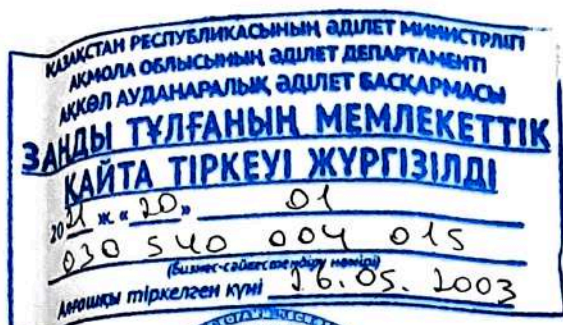 ҚАЗАҚСТАН РЕСПУБЛИКАСЫНЫҢ ӘДІЛЕТ МИНИСТРЛІГІ
АҚМОЛА ОБЛЫСЫНЫҢ ӘДІЛЕТ ДЕПАРТАМЕНТІ
АҚКӨЛ АУДАНАРАЛЫҚ ӘДІЛЕТ БАСҚАРМАСЫ
ЗАҢДЫ ТҰЛҒАНЫҢ МЕМЛЕКЕТТІК
ҚАЙТА ТІРКЕУІ ЖҮРГІЗІЛДІ
2021 ж. «20» 01
030 540 004 015
(бизнес-сәйкестендіру нөмірі)
Алғашқы тіркелген күні 26.05.2003